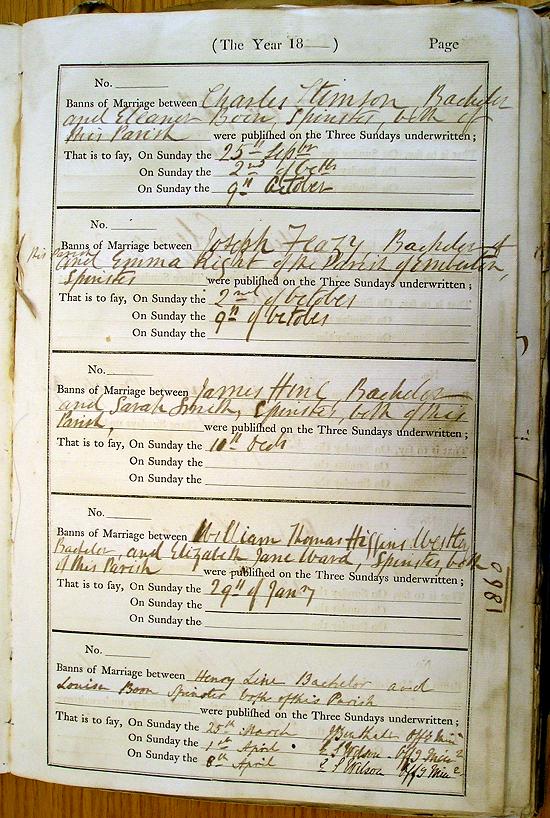 (The Year 18 ) Page
No.
Banns of Marriage between Charles Stimson, Bachelor
and Eleanor Boon, Spinster, both of
this Parish were published on the Three Sundays underwritten;
That is to say, On Sunday the 25th Septbr
On Sunday the 2nd of Octr
On Sunday the 9th October
No.
Banns of Marriage between Joseph Feazy Bachelor of
this Parish
and Emma of the Parish of Emberton,
Spinster were published on the Three Sundays underwritten;
That is to say, On Sunday the 2nd of October
On Sunday the 9th of October
On Sunday the
No.
Banns of Marriage between James Hine, Bachelor
and Sarah Smith, Spinster, both of this
Parish, were published on the Three Sundays underwritten;
That is to say, On Sunday the 10th Decr
On Sunday the
On Sunday the
No.
Banns of Marriage between William Thomas Higgins
Bachelor, and Elizabeth Jane Ward, Spinster, both
of this Parish were published on the Three Sundays underwritten;
That is to say, On Sunday the 29th of Jany
On Sunday the
On Sunday the
1860
No.
Banns of Marriage between Henry Line Bachelor and
Louisa Boon Spinster both of this Parish
were published on the Three Sundays underwritten;
That is to say, On Sunday the 25th March Offg Minr
On Sunday the 1st April Wilson Offg Minr
On Sunday the 8th April Wilson Offg Minr